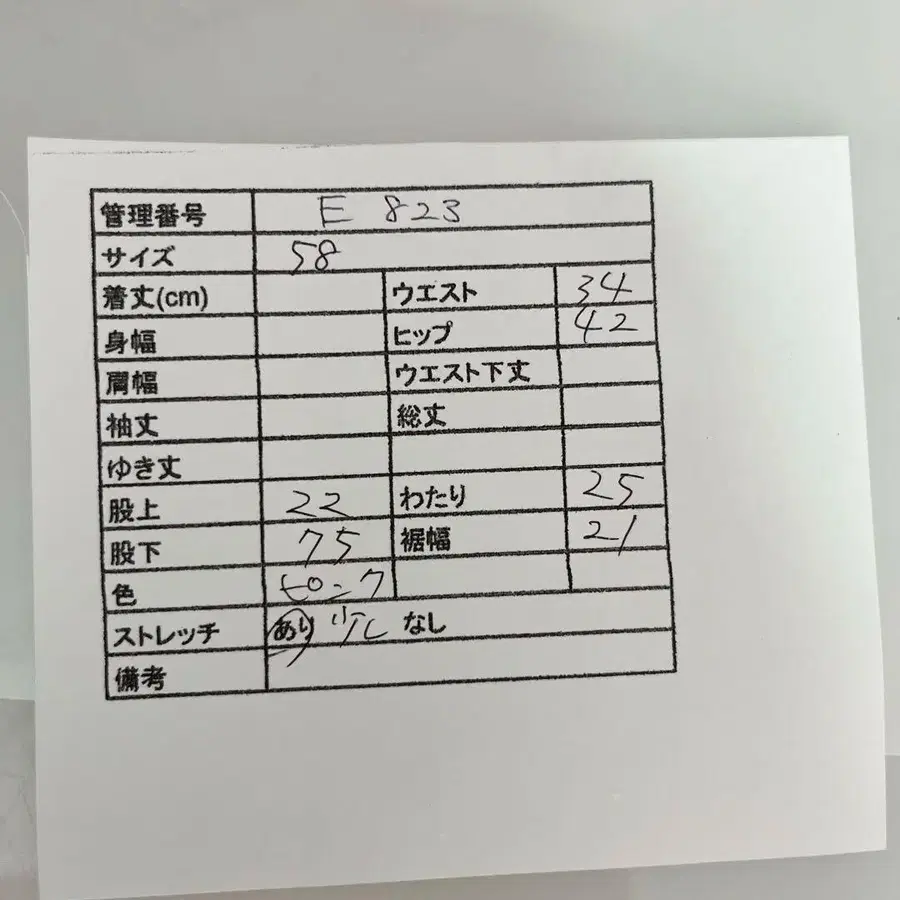 管理番号 E 823
サイズ 58
着丈(cm) ウエスト 34
身幅 ヒップ 42
肩幅 ウエスト下丈
袖丈 総丈
ゆき丈
股上 22 わたり 25
股下 75 裾幅 21
色 ピンク
ストレッチ あり 少し なし
備考